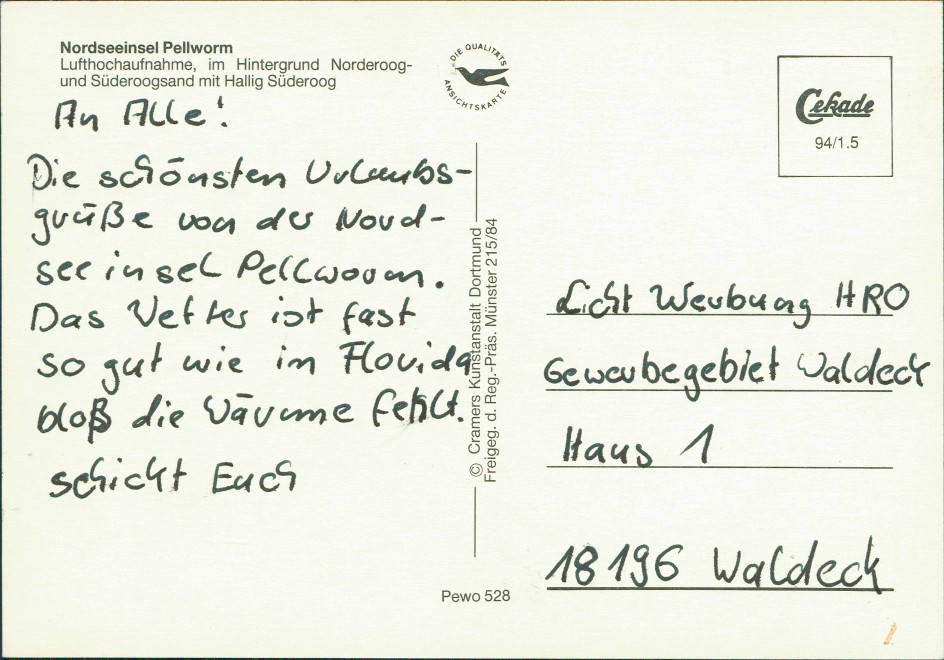 Nordseeinsel Pellworm
Lufthochaufnahme, im Hintergrund Norderoog-
und Süderoogsand mit Hallig Süderoog
An Alle!
Die schönsten Urlaubs-
grüße von der Nord-
seeinsel Pellworm.
Das Wetter ist fast
so gut wie im Florida
bloß die Wärme fehlt.
schickt Euch
DIE QUALITÄTS
ANSICHTSKARTE
© Cramers Kunstanstalt Dortmund
Freigeg. d. Reg.-Präs. Münster 215/84
Pewo 528
Cekade
94/1.5
Licht Werbung HRO
Gewerbegebiet Waldeck
Haus 1
18196 Waldeck